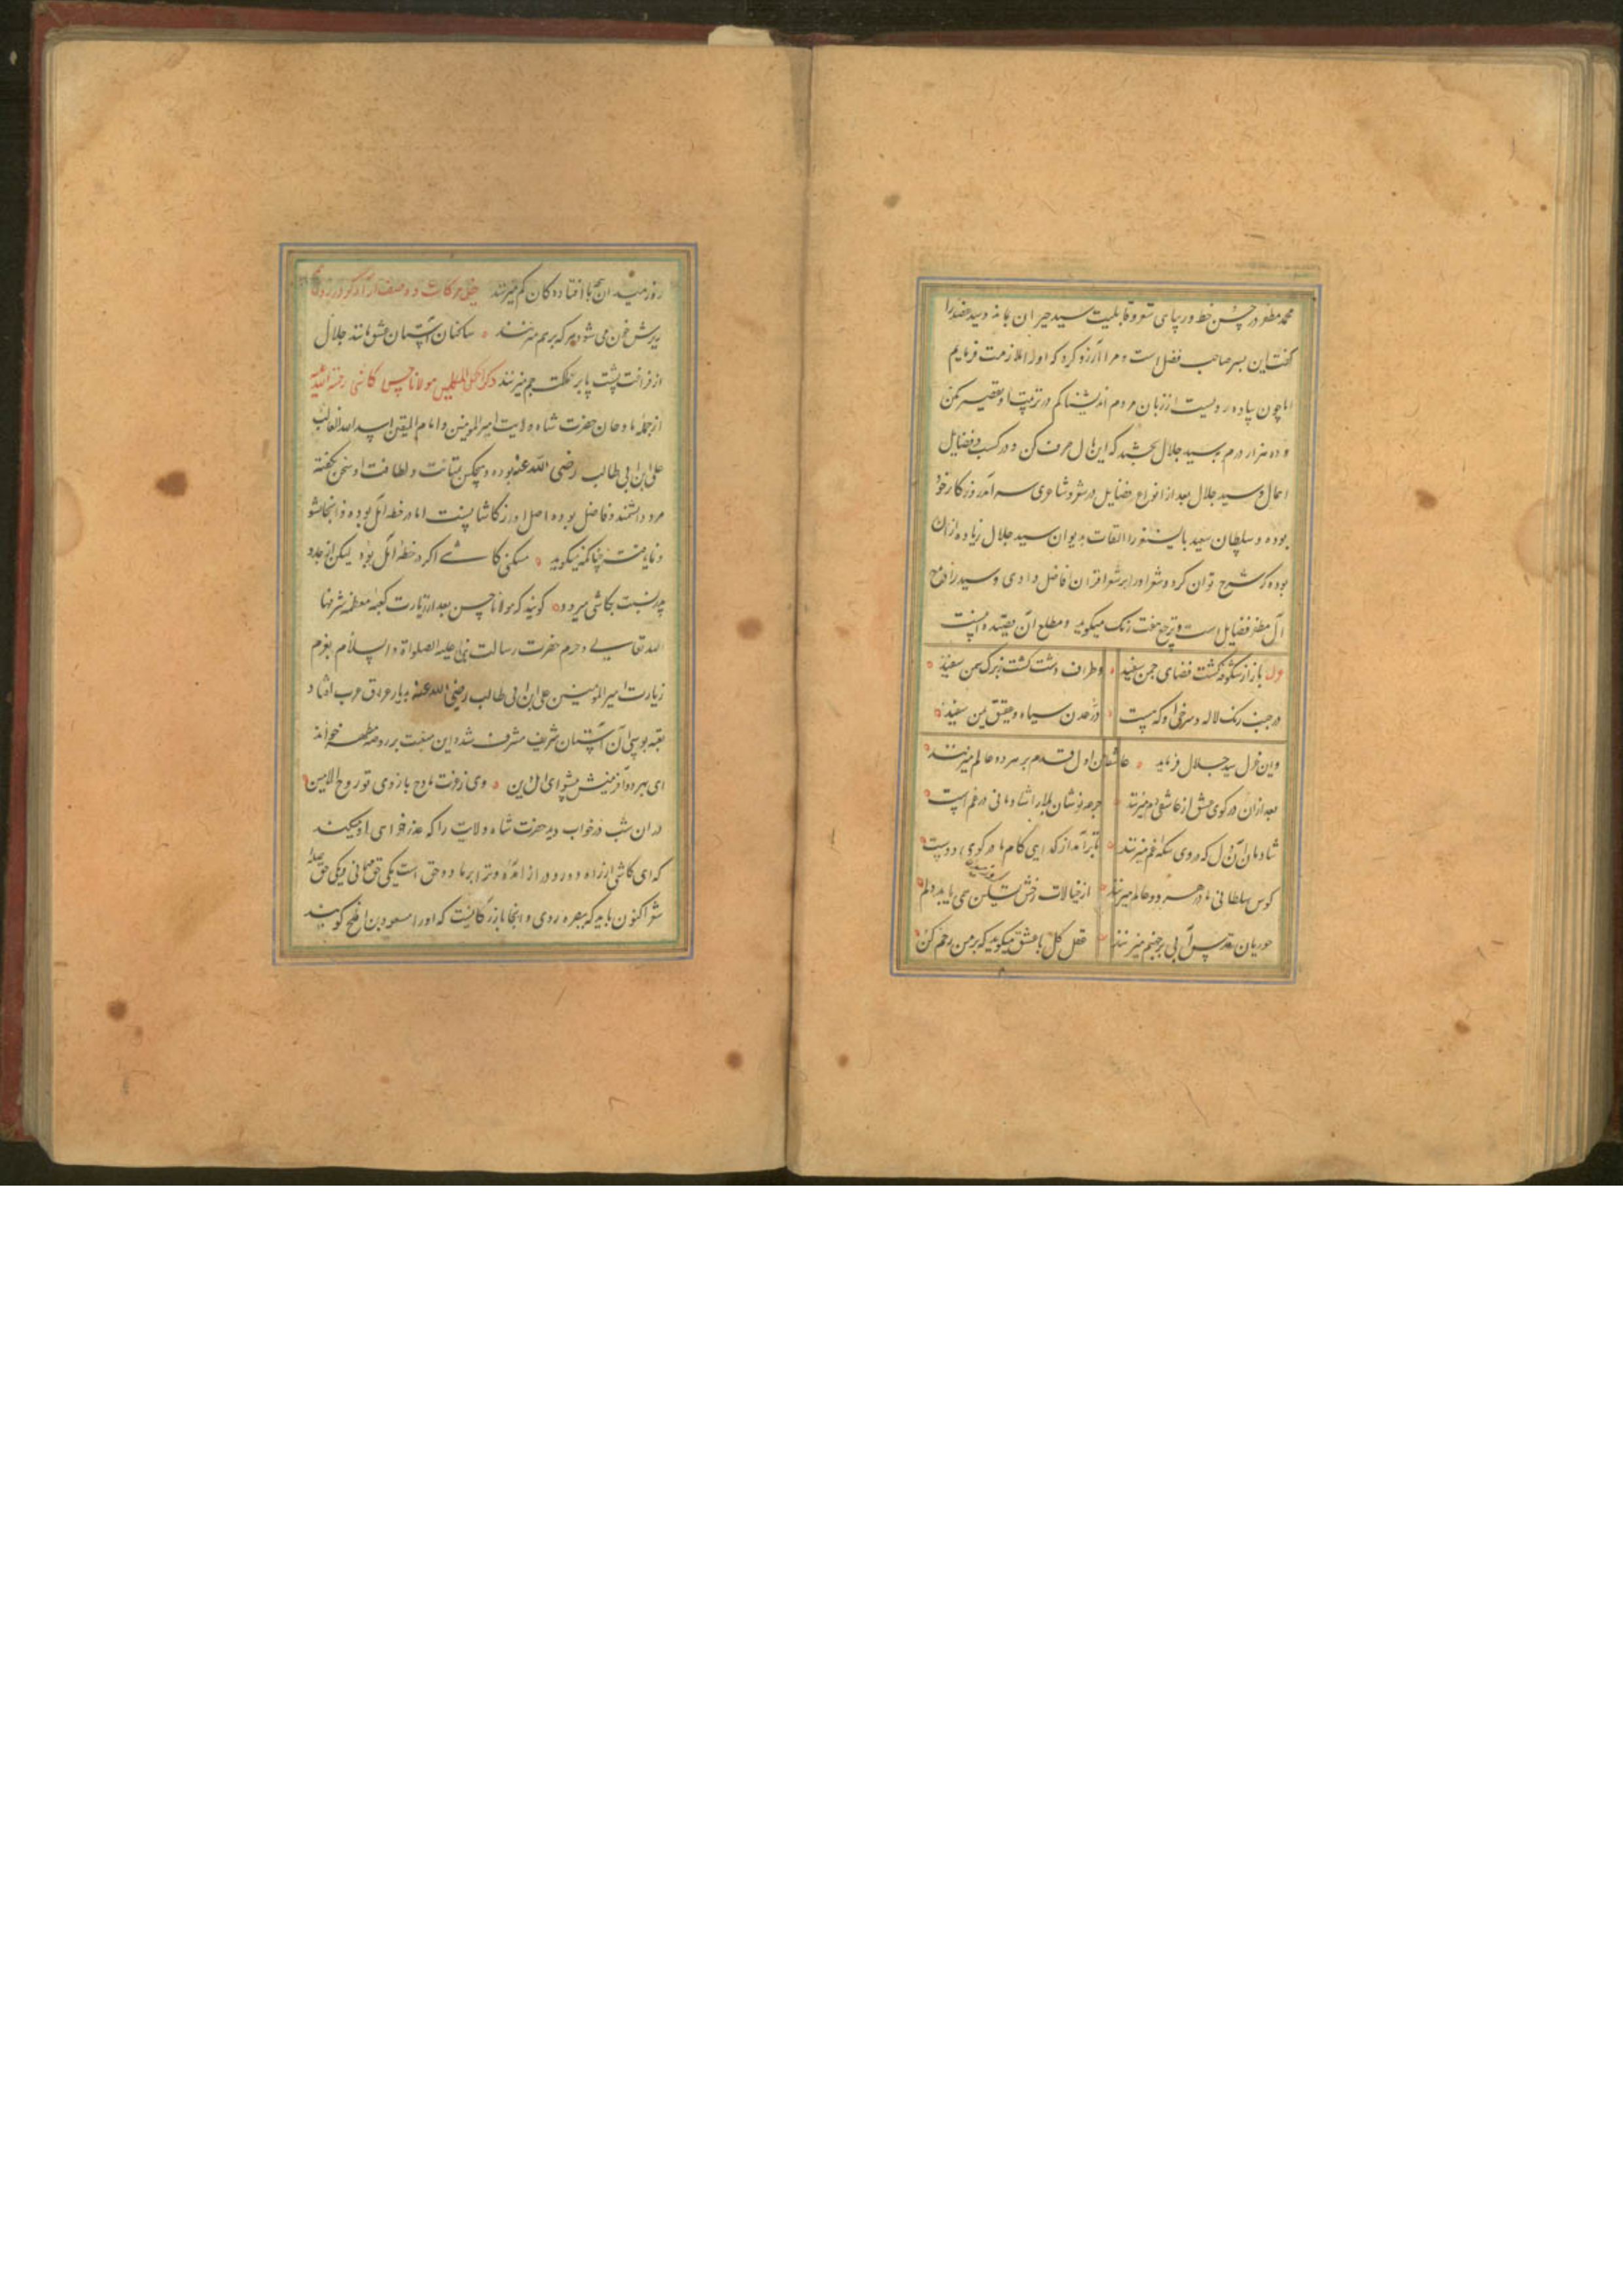 محمد مظفر در حسن خط و زیبای شعر و قابلیت سید حیران بماند و سید عضد را
گفت این پسر صاحب فضل است و مرا آرزو کرد که او را ملازمت فرمایم
اما چون پیاده رو نیست از زبان مردم اندیشناکم در تربیت او تقصیر مکن
و ده هزار درم به سید جلال بخشید که این مال صرف کن و در کسب فضایل
اهمال و سید جلال بعد از انواع فضایل در شعر و شاعری سرآمد روزگار خود
بوده و سلطان سعید بایسنغر را التفات بدیوان سید جلال زیاده از آن
بوده که شرح توان کرد و شعر او را بر شعرا اقران فاضل دادی و سید را در مدح
آل مظفر فضایل است و ترجیع هفت رنگ میگوید و مطلع آن قصیده اینست
وله باز از شکوفه گشت فضای چمن سفید و اطراف دشت گشت ز برگ سمن سفید
در جنب رنگ لاله و سرخی او که نیست در عدن سیاه و عقیق یمن سفید
و این غزل سید جلال فرماید عاشقان اول قدم بر هر دو عالم میزنند
بعد از آن در کوی عشق از عاشقی دم میزنند جرعه نوشان بلا را شادمانی در غم است
شادمان آن دل که در وی سکه غم میزنند تا برآمد از گدایی کام ما در کوی دوست
کوس سلطانی ما در هر دو عالم میزنند از خیالات رخش تسکین می یابد دلم
حوریان قدس آبی بر جهنم میزنند عقل کل با عشق میگوید که بر من رحم کن
زورمندان پنجه با افتادگان کم میزنند خیل حرکات
پرسش خون می شود هر که بر هم میزنند ساکنان آستان عشق مانند جلال
از فراغت پشت پا بر مملکت جم میزنند ذکر املح المتکلمین مولانا حسن کاشی رحمة الله علیه
از جمله مداحان حضرت شاه ولایت امیر المومنین و امام المتقین اسد الله الغالب
علی ابن ابی طالب رضی الله عنه بوده و هیچکس بمتانت و لطافت او سخن نگفته
مرد دانشمند و فاضل بوده اصل او از کاشانست اما در خطه آمل بوده و آنجا نشو
و نما یافته چنانکه میگوید مسکنی کاشی اگر در خطه آمل بود لیکن از جد و
پدر نسبت بکاشی میرود گویند که مولانا حسن بعد از زیارت کعبه معظمه شرفها
الله تعالی و حرم حضرت رسالت نبی علیه الصلواة والسلام بعزم
زیارت امیر المومنین علی ابن ابی طالب رضی الله عنه بدیار عراق عرب افتاد
بعتبه بوسی آن آستان شریف مشرف شده این منقبت بر روضه مطهره خواند
ای بدو آفرینش پیشوای اهل دین وی ز عزت مادح بازوی تو روح الامین
در آن شب در خواب دید حضرت شاه ولایت را که عذرخواهی او میکند
که ای کاشی از راه دور و دراز آمده و ترا بر ما دو حق است یکی حق مهمانی و یکی حق صله
شعر اکنون باید که ببصره روی و آنجا بازرگانیست که او را مسعود بن افلح گویند